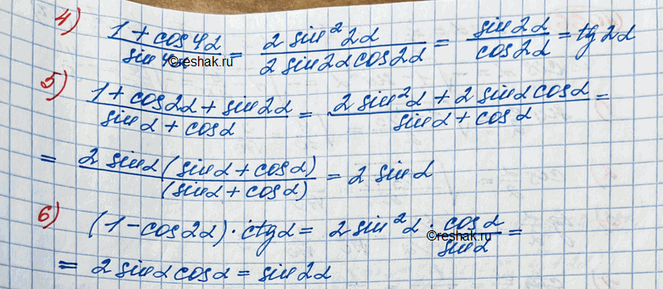 4) (1 + cos4α)/(sin4α) = (2 sin²2α)/(2 sin2α cos2α) = (sin2α)/(cos2α) = tg2α
©reshak.ru
5) (1 + cos2α + sin2α)/(sinα + cosα) = (2 sin²α + 2 sinα cosα)/(sinα + cosα) =
= (2 sinα (sinα + cosα))/((sinα + cosα)) = 2 sinα
6) (1 - cos2α) · ctgα = 2 sin²α · (cosα)/(sinα) =
©reshak.ru
= 2 sinα cosα = sin2α